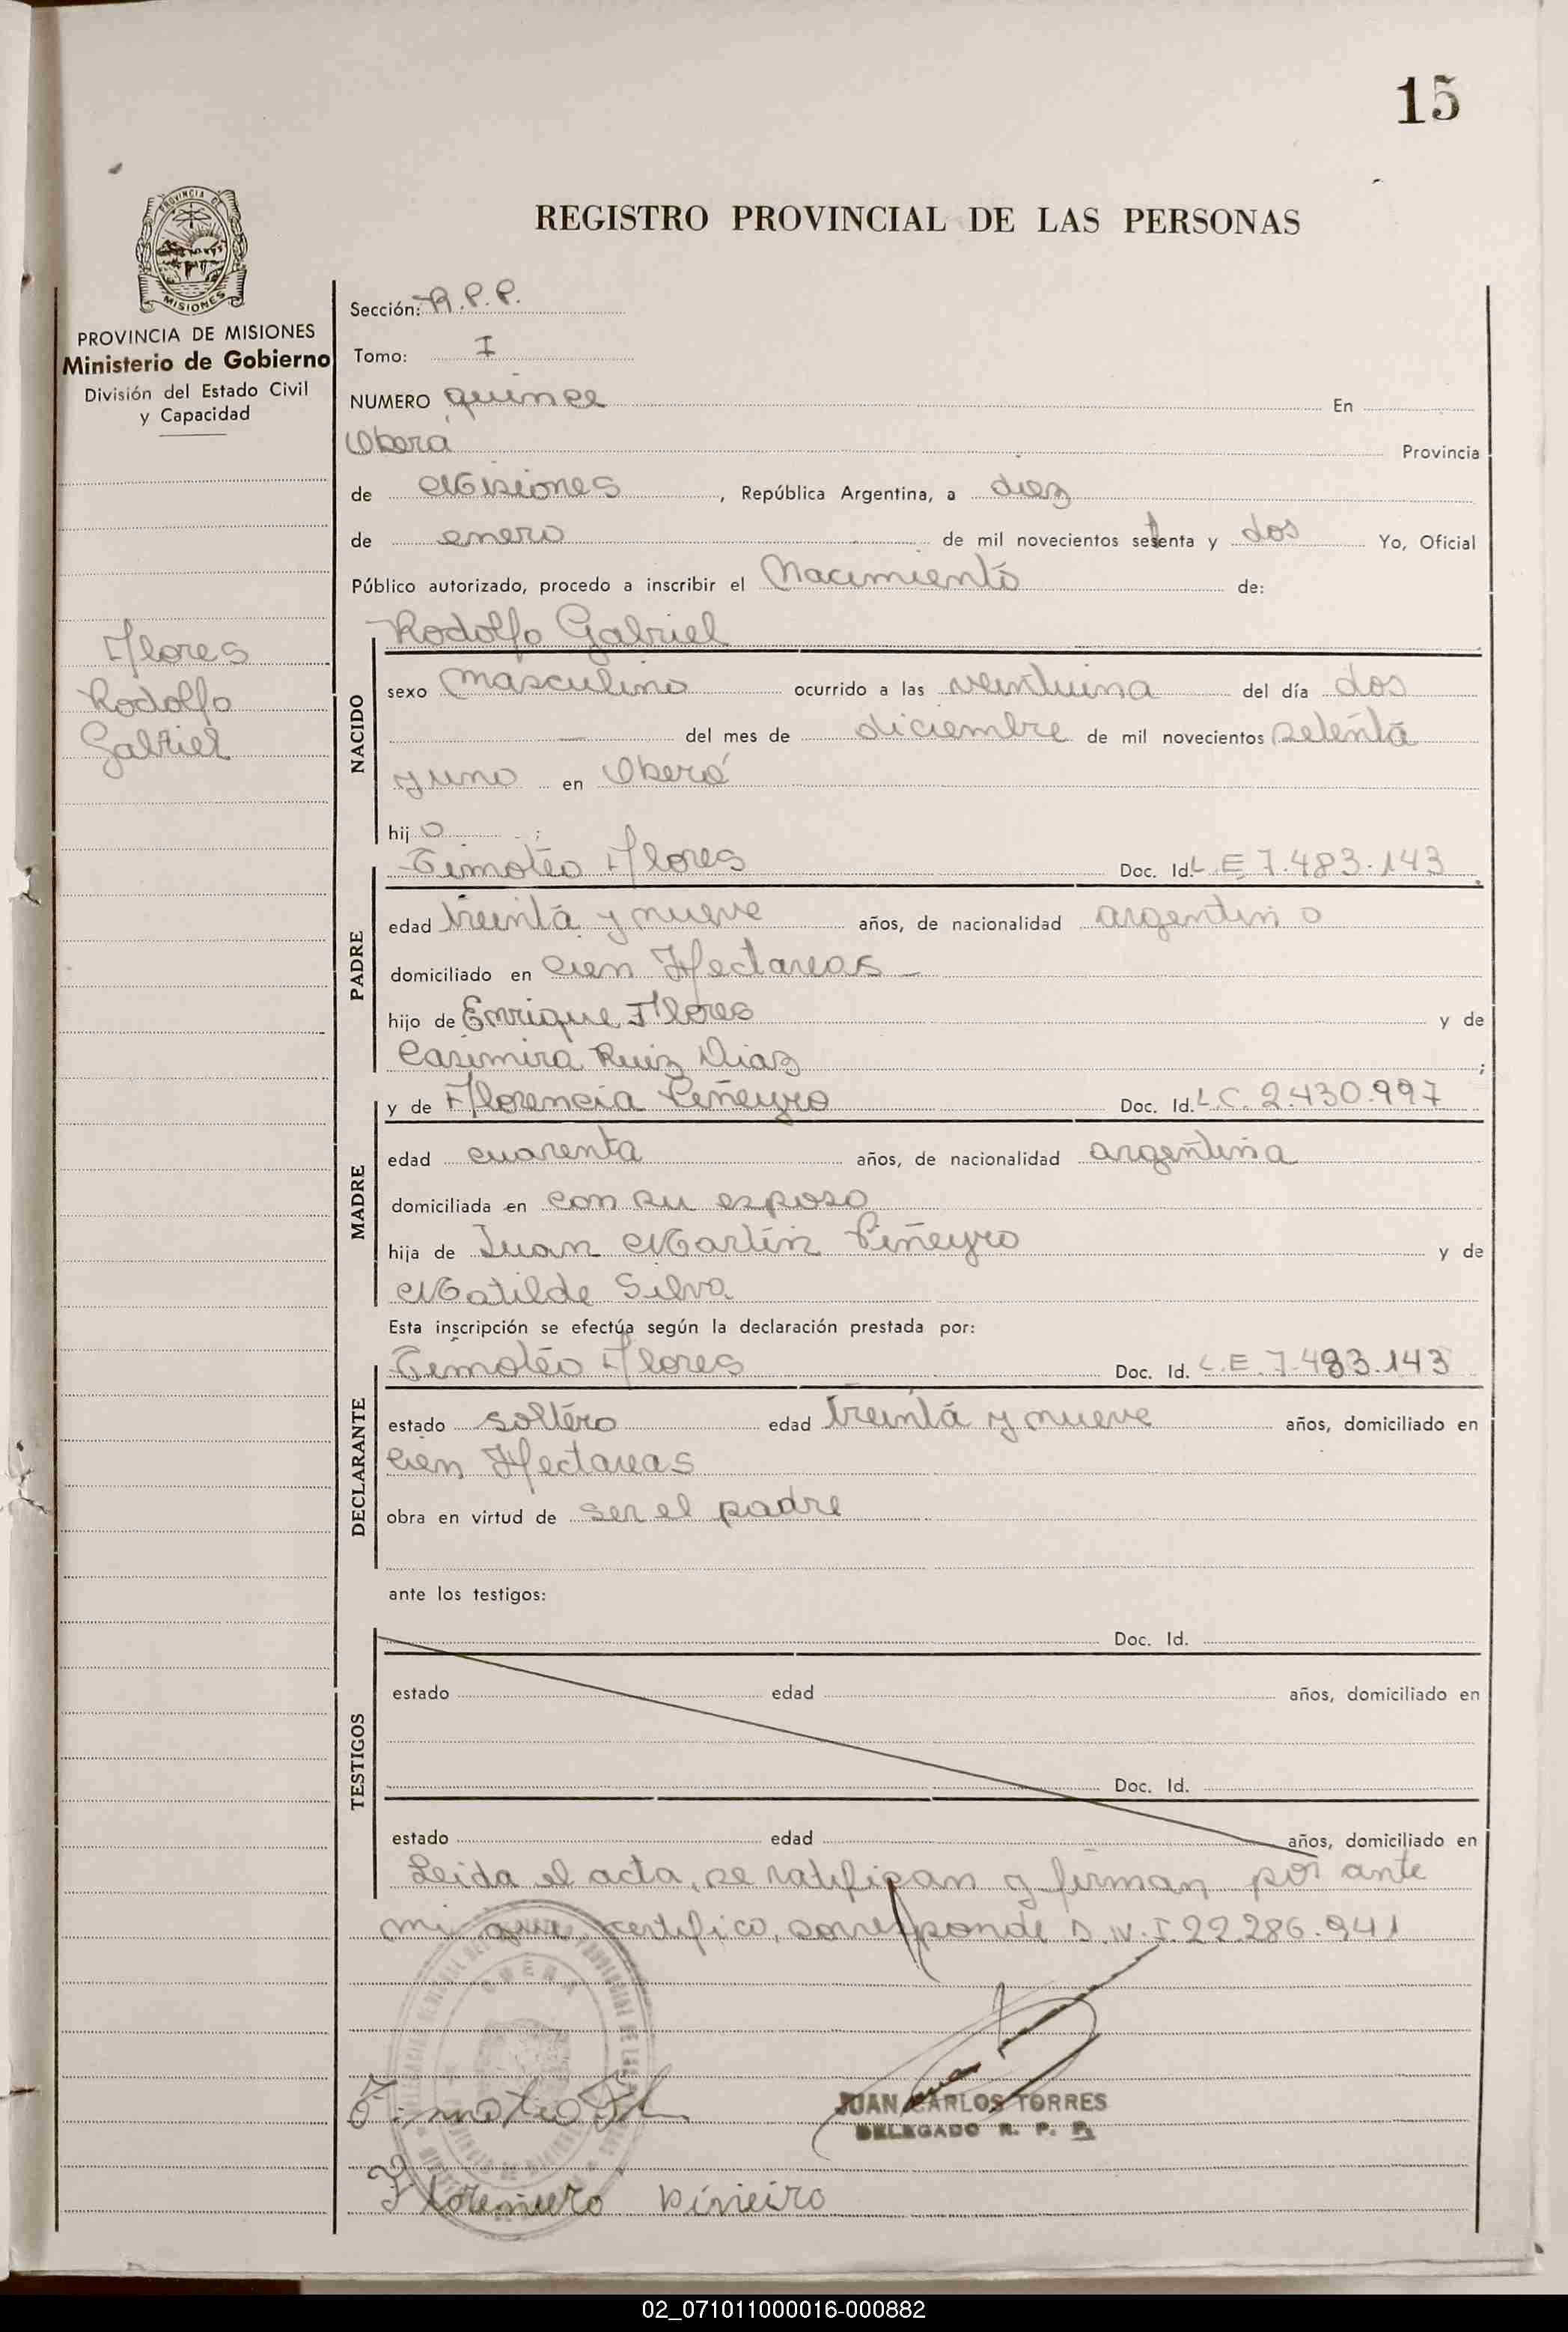 15
PROVINCIA DE
MISIONES
PROVINCIA DE MISIONES
Ministerio de Gobierno
División del Estado Civil
y Capacidad
Flores
Rodolfo
Gabriel
REGISTRO PROVINCIAL DE LAS PERSONAS
Sección: R.P.P.
Tomo: I
NUMERO quince En
Oberá Provincia
de Misiones, República Argentina, a diez
de enero de mil novecientos setenta y dos Yo, Oficial
Público autorizado, procedo a inscribir el Nacimiento de:
Rodolfo Gabriel
NACIDO
sexo masculino ocurrido a las veintiuna del día dos
— del mes de diciembre de mil novecientos setenta
y uno en Oberá
hijo ;
PADRE
Timoteo Flores Doc. Id. L.E 7.483.143
edad treinta y nueve años, de nacionalidad argentino
domiciliado en cien Hectareas —
hijo de Enrique Flores y de
Casimira Ruiz Diaz ;
MADRE
y de Florencia Piñeyro Doc. Id. L.C. 2.430.997
edad cuarenta años, de nacionalidad argentina
domiciliada en con su esposo
hija de Juan Martín Piñeyro y de
Matilde Silva
Esta inscripción se efectúa según la declaración prestada por:
DECLARANTE
Timoteo Flores Doc. Id. L.E. 7.483.143
estado soltero edad treinta y nueve años, domiciliado en
Cien Hectareas
obra en virtud de ser el padre
ante los testigos:
TESTIGOS
Doc. Id.
estado edad años, domiciliado en
Doc. Id.
estado edad años, domiciliado en
Leida el acta, se ratifican y firman por ante
mi que certifico, corresponde D.N.I. 22.286.941
OBERA
Timoteo
JUAN CARLOS TORRES
DELEGADO R. P. P.
Piñeiro
02_071011000016-000882